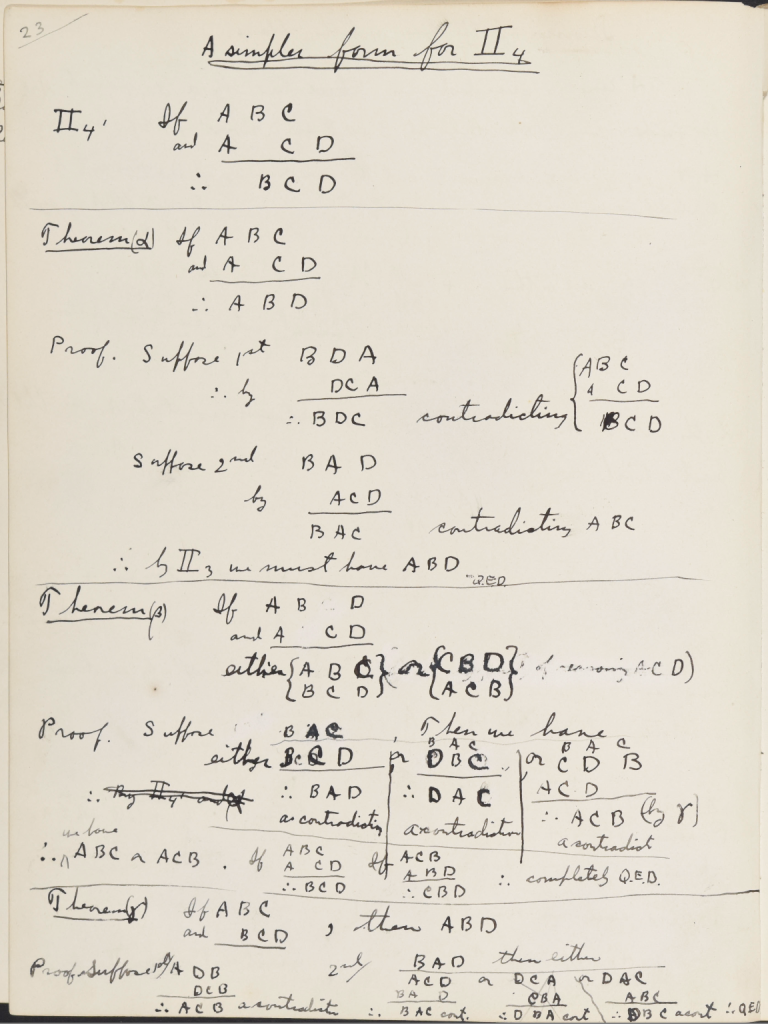 23
A simpler form for II4
II4' If A B C
and A C D
∴ B C D
Theorem (α) If A B C
and A C D
∴ A B D
Proof. Suppose 1st B D A
∴ by DCA
∴ BDC contradicting { ABC
A CD
BCD
Suppose 2nd B A D
by ACD
BAC contradicting A B C
∴ by II3 we must have ABD
Q.E.D.
Theorem (β) If A B D
and A C D
either { A B C } or { C B D }
{ B C D } { A C B }
of A C D)
Proof. Suppose B A C , Then we have
either B C D or B A C D B C or B A C C D B
∴ By II4' and α ∴ B A D ∴ D A C A C D
a contradiction a contradiction ∴ A C B (by γ)
we have a contradict
∴ ABC or ACB . If ABC A CD ∴ BCD If ACB ABD ∴ CBD ∴ completely Q.E.D.
Theorem (γ) If A B C
and B C D , then ABD
Proof. Suppose 1st/ A D B 2nd/ BAD then either
DCB ACD or DCA or DAC
∴ A C B a contradictn ∴ BA D BAC cont. ∴ CBA D BA cont ABC ∴ DBC a cont ∴ QED